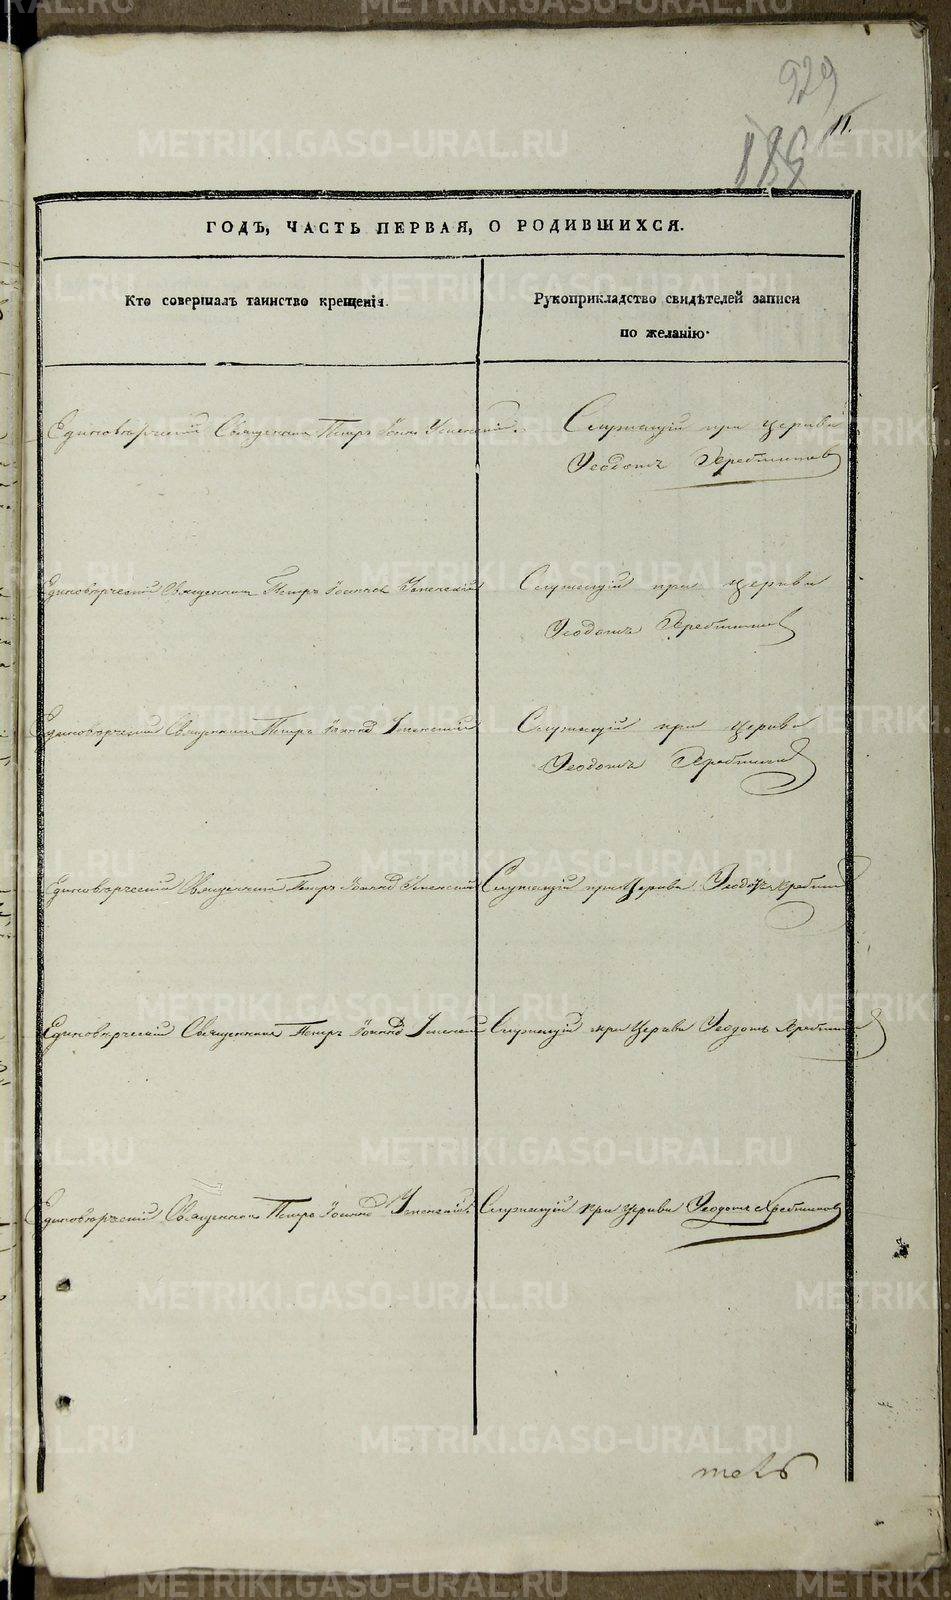 929
11.
ГОДЪ, ЧАСТЬ ПЕРВАЯ, О РОДИВШИХСЯ.
Кто совершалъ таинство крещенія.
Рукоприкладство свидѣтелей записи
по желанію.
Единовѣрческій Священникъ Петръ Іоан Успенскій.
Служащій при церкви
Ѳеодотъ Хребтиковъ
Единовѣрческій Священникъ Петръ Іоанновъ Успенскій
Служащій при церкви
Ѳеодотъ Хребтиковъ
Единовѣрческій Священникъ Петръ Іоаннъ Успенскій
Служащій при церкви
Ѳеодотъ
Единовѣрческій Священникъ Петръ Іоаннъ Успенскій
Служащій при Церкви Ѳеодотъ
Единовѣрческій Священникъ Петръ Іоаннъ Успенскій
Служащій при Церкви Ѳеодотъ
Единовѣрческій Священникъ Петръ Іоаннъ Успенскій
Служащій при церкви Ѳеодотъ Хребтиковъ
METRIKI.GASO-URAL.RU